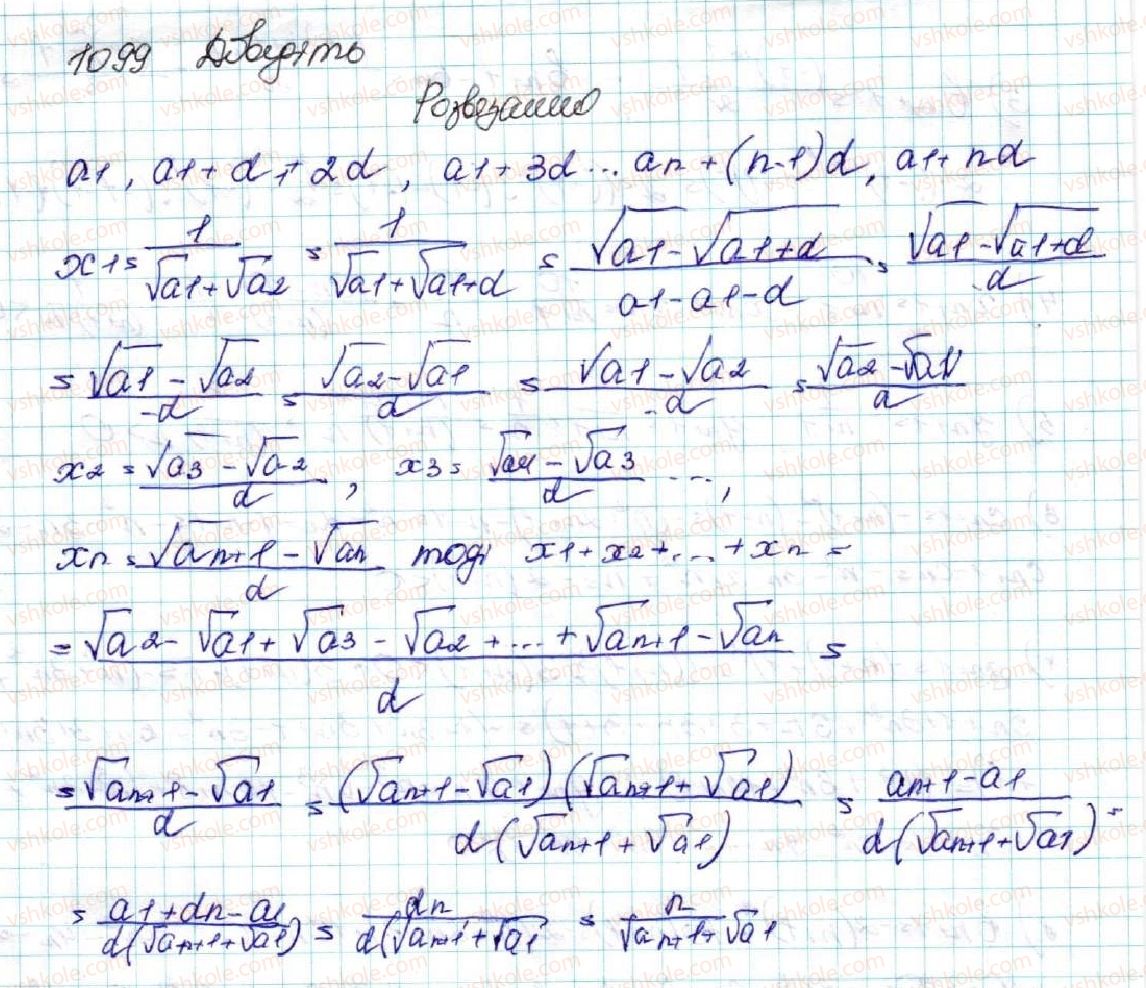 1099 Доведіть
Розвязанню
a1, a1+d, + 2d, a1+3d... an+(n-1)d, a1+nd
x1 = 1/(√a1+√a2) = 1/(√a1+√a1+d) = (√a1-√a1+d)/(a1-a1-d) = (√a1-√a1+d)/-d
= (√a1-√a2)/-d = (√a2-√a1)/d = (√a1-√a2)/-d = (√a2-√a1)/d
x2 = (√a3-√a2)/d, x3 = (√a4-√a3)/d ...,
xn = (√an+1-√an)/d тоді x1+x2+...+xn =
= (√a2-√a1+√a3-√a2+...+√an+1-√an)/d =
= (√an+1-√a1)/d = (√an+1-√a1)(√an+1+√a1)/d(√an+1+√a1) = (an+1-a1)/d(√an+1+√a1) =
= (a1+dn-a1)/d(√an+1+√a1) = dn/d(√an+1+√a1 = n/(√an+1+√a1)
vshkole.com